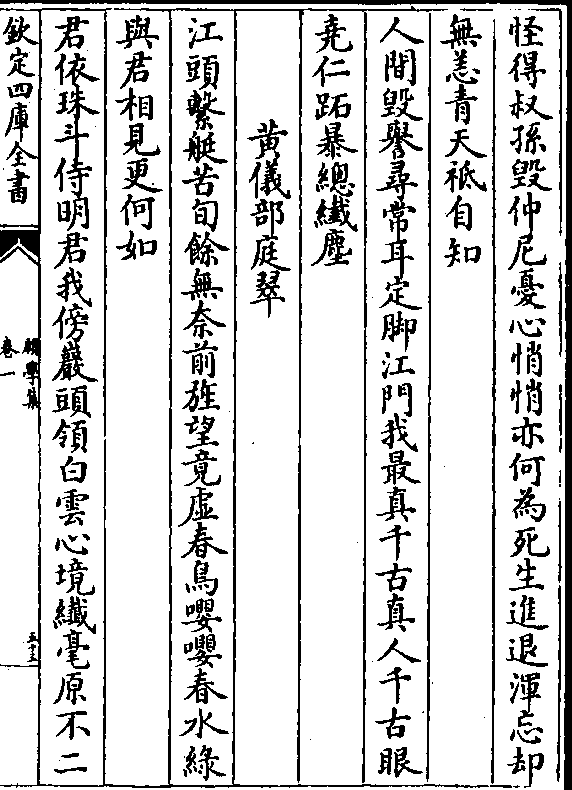 怪得叔孫毀仲尼憂心悄悄亦何為死生進退渾忘却
無恙青天祗自知
人間毀譽尋常耳定脚江門我最真千古真人千古眼
堯仁跖暴總纖塵
黄儀部庭翠
江頭繫艇苦旬餘無奈前旌望竟虛春鳥嚶嚶春水綠
與君相見更何如
君依珠斗侍明君我傍巖頭領白雲心境纖毫原不二
欽定四庫全書
卷一
五十三